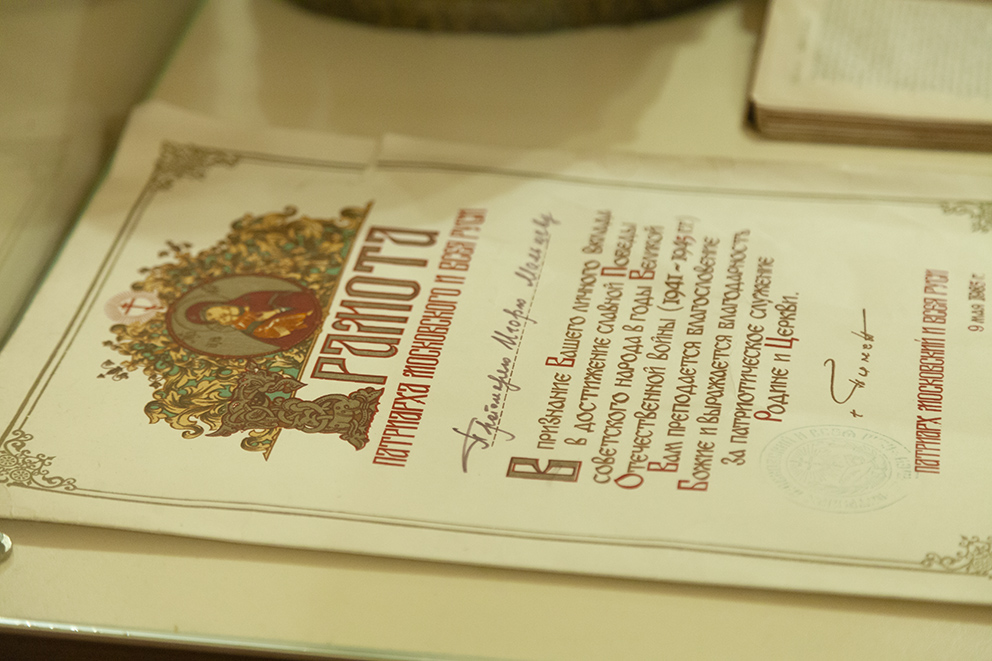 Грамота
Патриарха Московского и всея Руси
Протоиерею
В признание Вашего личного вклада
в достижение славной Победы
советского народа в годы Великой
Отечественной войны (1941–1945 гг.)
Вам преподается благословение
Божие и выражается благодарность
за патриотическое служение
Родине и Церкви.
+ Пимен
Патриарх Московский и всея Руси
9 мая 1985 г.